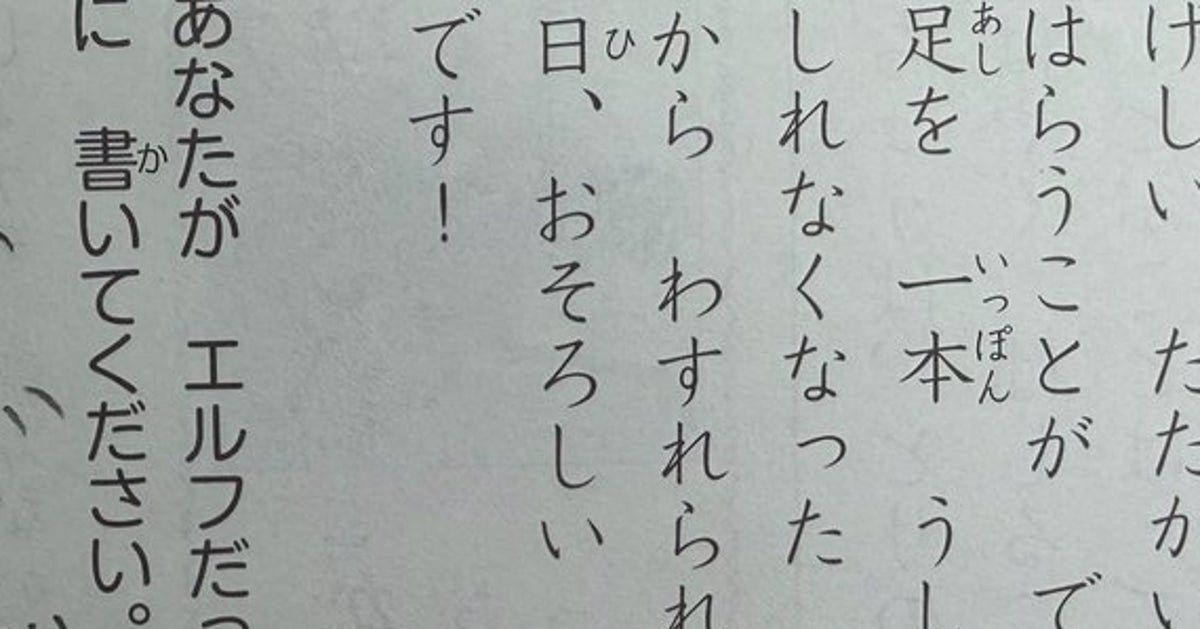 けしい たたかい
はらうことが で
足を 一本 うし
しれなくなった
から わすれられ
日、おそろしい
です！
あなたが エルフだっ
に 書いてください。